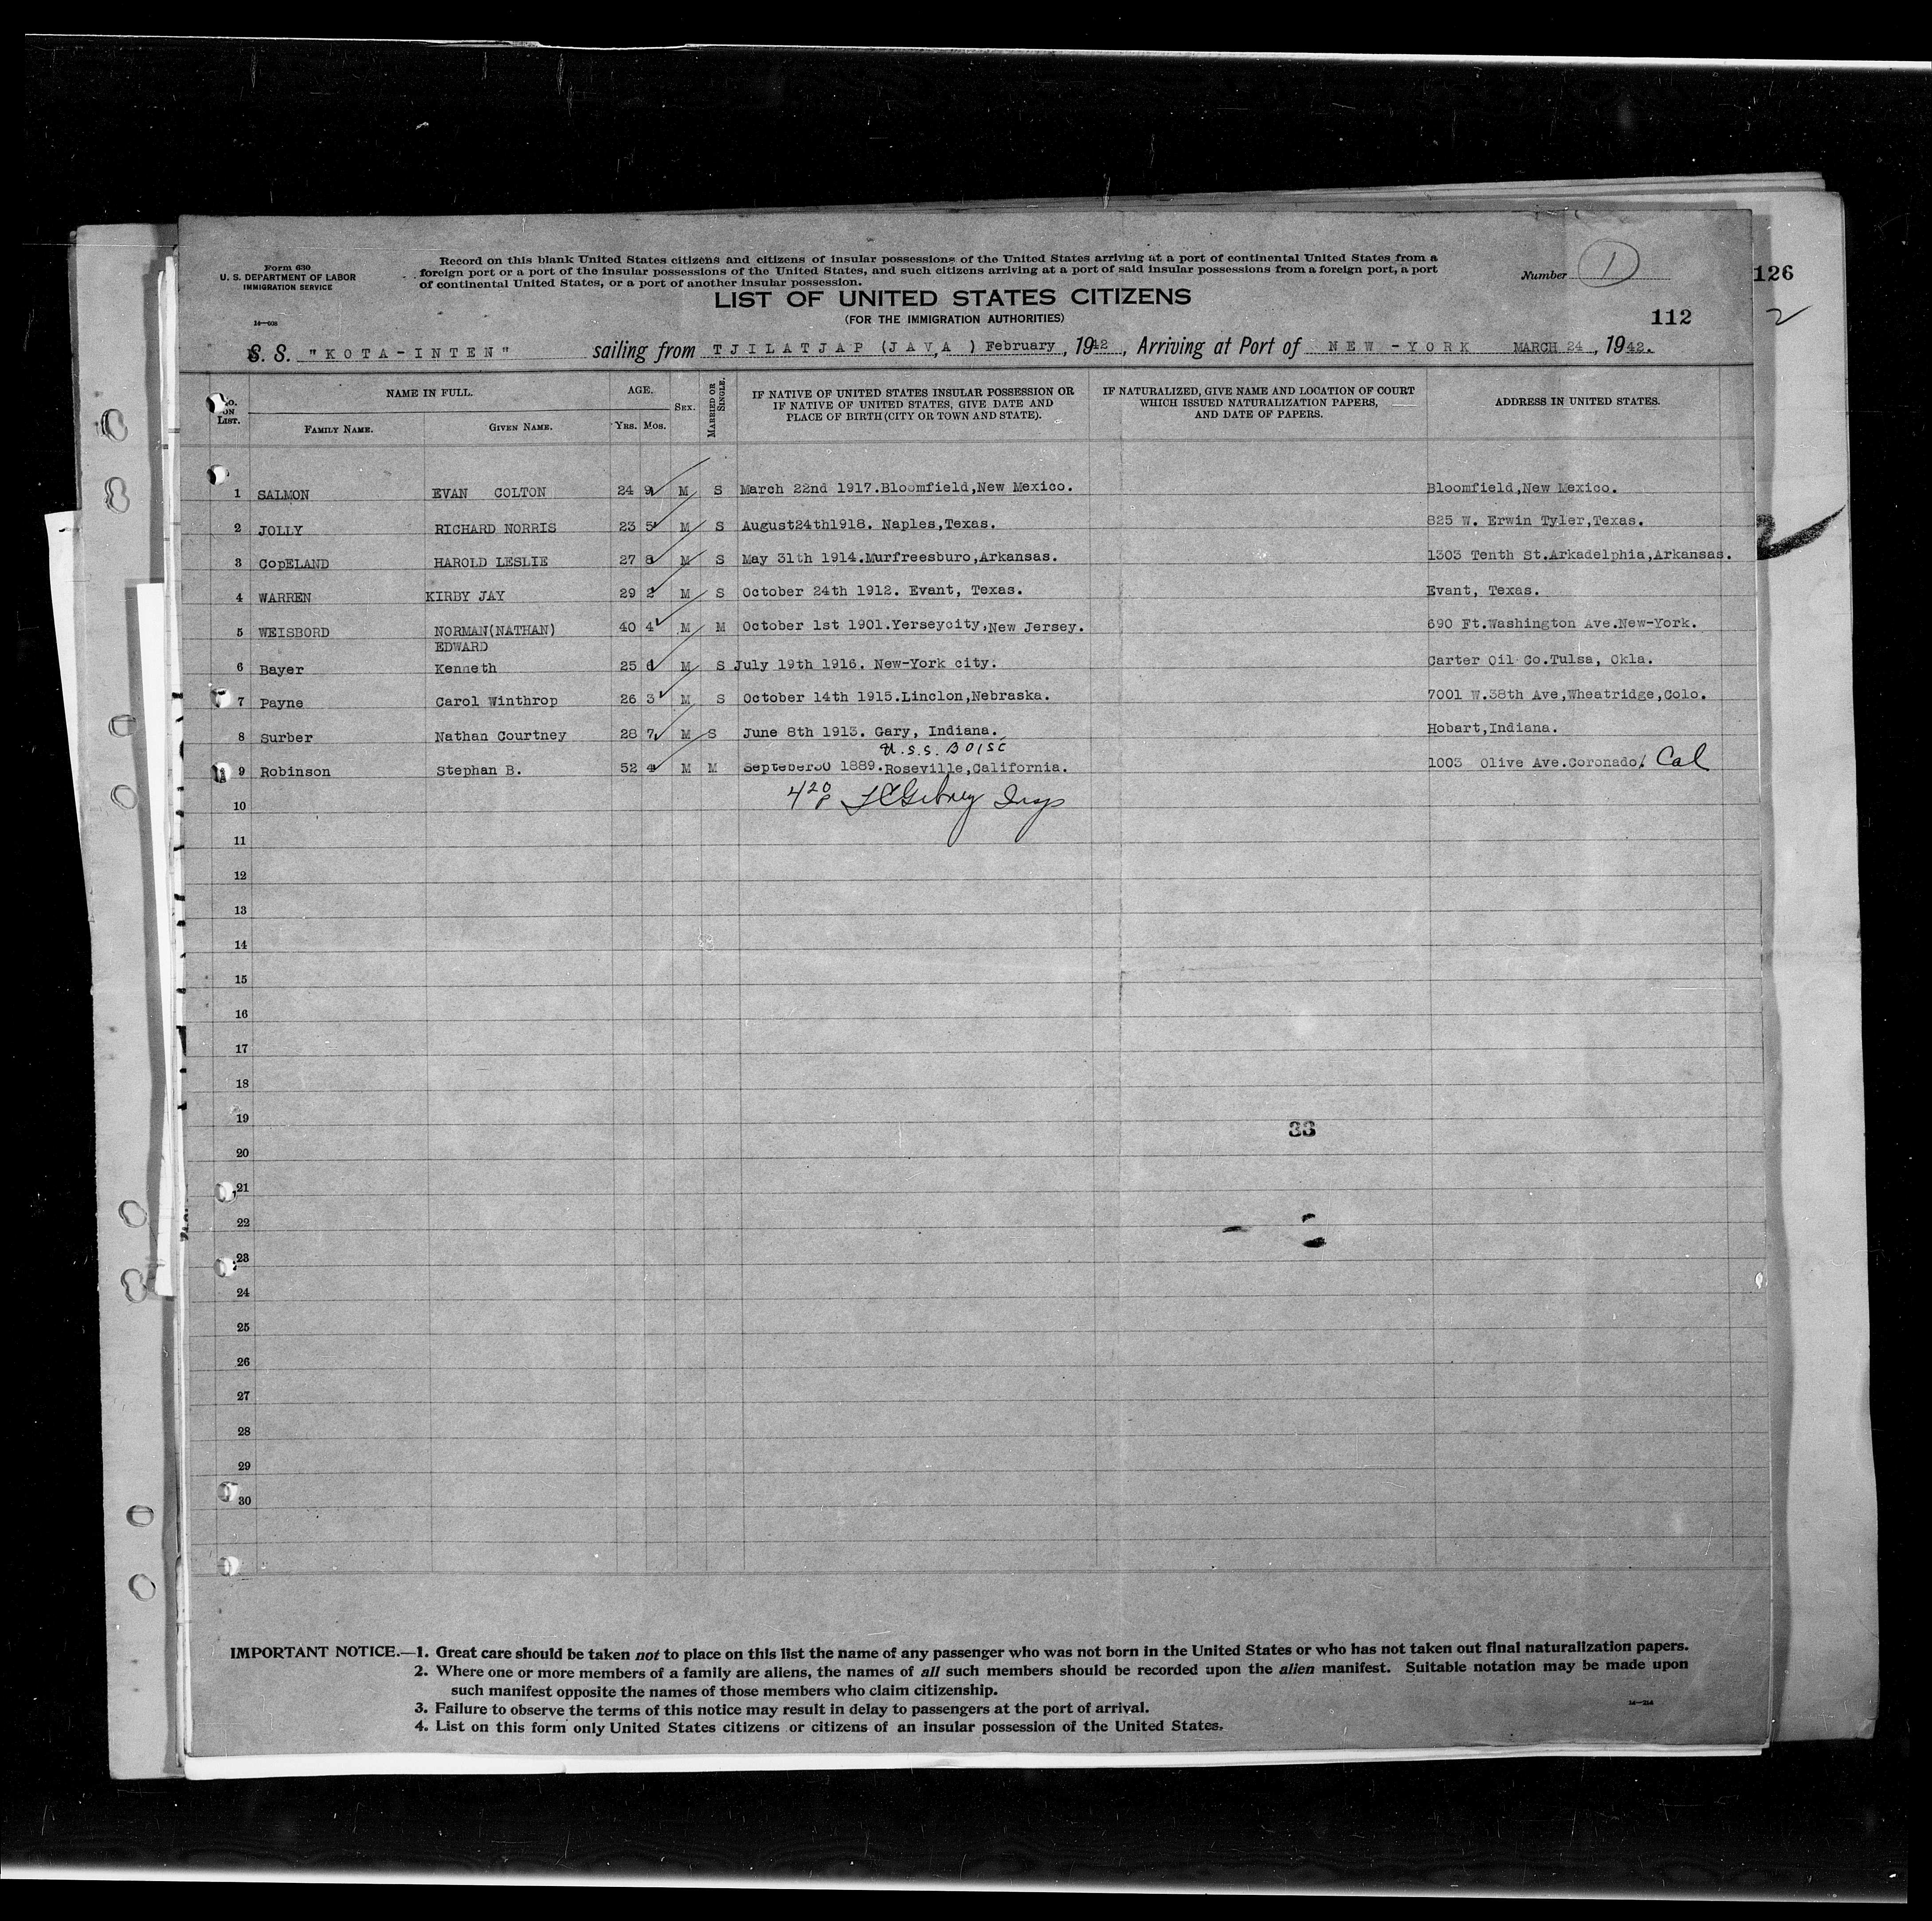 Form 630
U. S. DEPARTMENT OF LABOR
IMMIGRATION SERVICE
14—608
Record on this blank United States citizens and citizens of insular possessions of the United States arriving at a port of continental United States from a
foreign port or a port of the insular possessions of the United States, and such citizens arriving at a port of said insular possessions from a foreign port, a port
of continental United States, or a port of another insular possession.
Number 1
126
LIST OF UNITED STATES CITIZENS
(FOR THE IMMIGRATION AUTHORITIES)
112
2
S. S. "KOTA-INTEN" sailing from TJILATJAP (JAVA, ) February, 1942, Arriving at Port of NEW-YORK MARCH 24, 1942.
No. ON LIST. NAME IN FULL. FAMILY NAME. GIVEN NAME. AGE. YRS. MOS. SEX. MARRIED OR SINGLE. IF NATIVE OF UNITED STATES INSULAR POSSESSION OR IF NATIVE OF UNITED STATES, GIVE DATE AND PLACE OF BIRTH (CITY OR TOWN AND STATE). IF NATURALIZED, GIVE NAME AND LOCATION OF COURT WHICH ISSUED NATURALIZATION PAPERS, AND DATE OF PAPERS. ADDRESS IN UNITED STATES.
1 SALMON EVAN COLTON 24 9 M S March 22nd 1917.Bloomfield,New Mexico. Bloomfield,New Mexico.
2 JOLLY RICHARD NORRIS 23 5 M S August24th1918. Naples,Texas. 825 W. Erwin Tyler,Texas.
3 CopELAND HAROLD LESLIE 27 8 M S May 31th 1914.Murfreesburo,Arkansas. 1303 Tenth St.Arkadelphia,Arkansas.
4 WARREN KIRBY JAY 29 2 M S October 24th 1912. Evant, Texas. Evant, Texas.
5 WEISBORD NORMAN(NATHAN) 40 4 M M October 1st 1901.Yerseycity,New Jersey. 690 Ft.Washington Ave.New-York.
EDWARD
6 Bayer Kenneth 25 6 M S July 19th 1916. New-York city. Carter Oil Co.Tulsa, Okla.
7 Payne Carol Winthrop 26 3 M S October 14th 1915.Linclon,Nebraska. 7001 W.38th Ave,Wheatridge,Colo.
8 Surber Nathan Courtney 28 7 M S June 8th 1913. Gary, Indiana. Hobart,Indiana.
U.S.S. BOISE
9 Robinson Stephan B. 52 4 M M Septeber30 1889.Roseville,California. 1003 Olive Ave.Coronado, Cal
10 4 20 P Insp
11
12
13
14
15
16
17
18
19
33
20
21
22
23
24
25
26
27
28
29
30
IMPORTANT NOTICE.—1. Great care should be taken not to place on this list the name of any passenger who was not born in the United States or who has not taken out final naturalization papers.
2. Where one or more members of a family are aliens, the names of all such members should be recorded upon the alien manifest. Suitable notation may be made upon
such manifest opposite the names of those members who claim citizenship.
3. Failure to observe the terms of this notice may result in delay to passengers at the port of arrival.
14—214
4. List on this form only United States citizens or citizens of an insular possession of the United States.